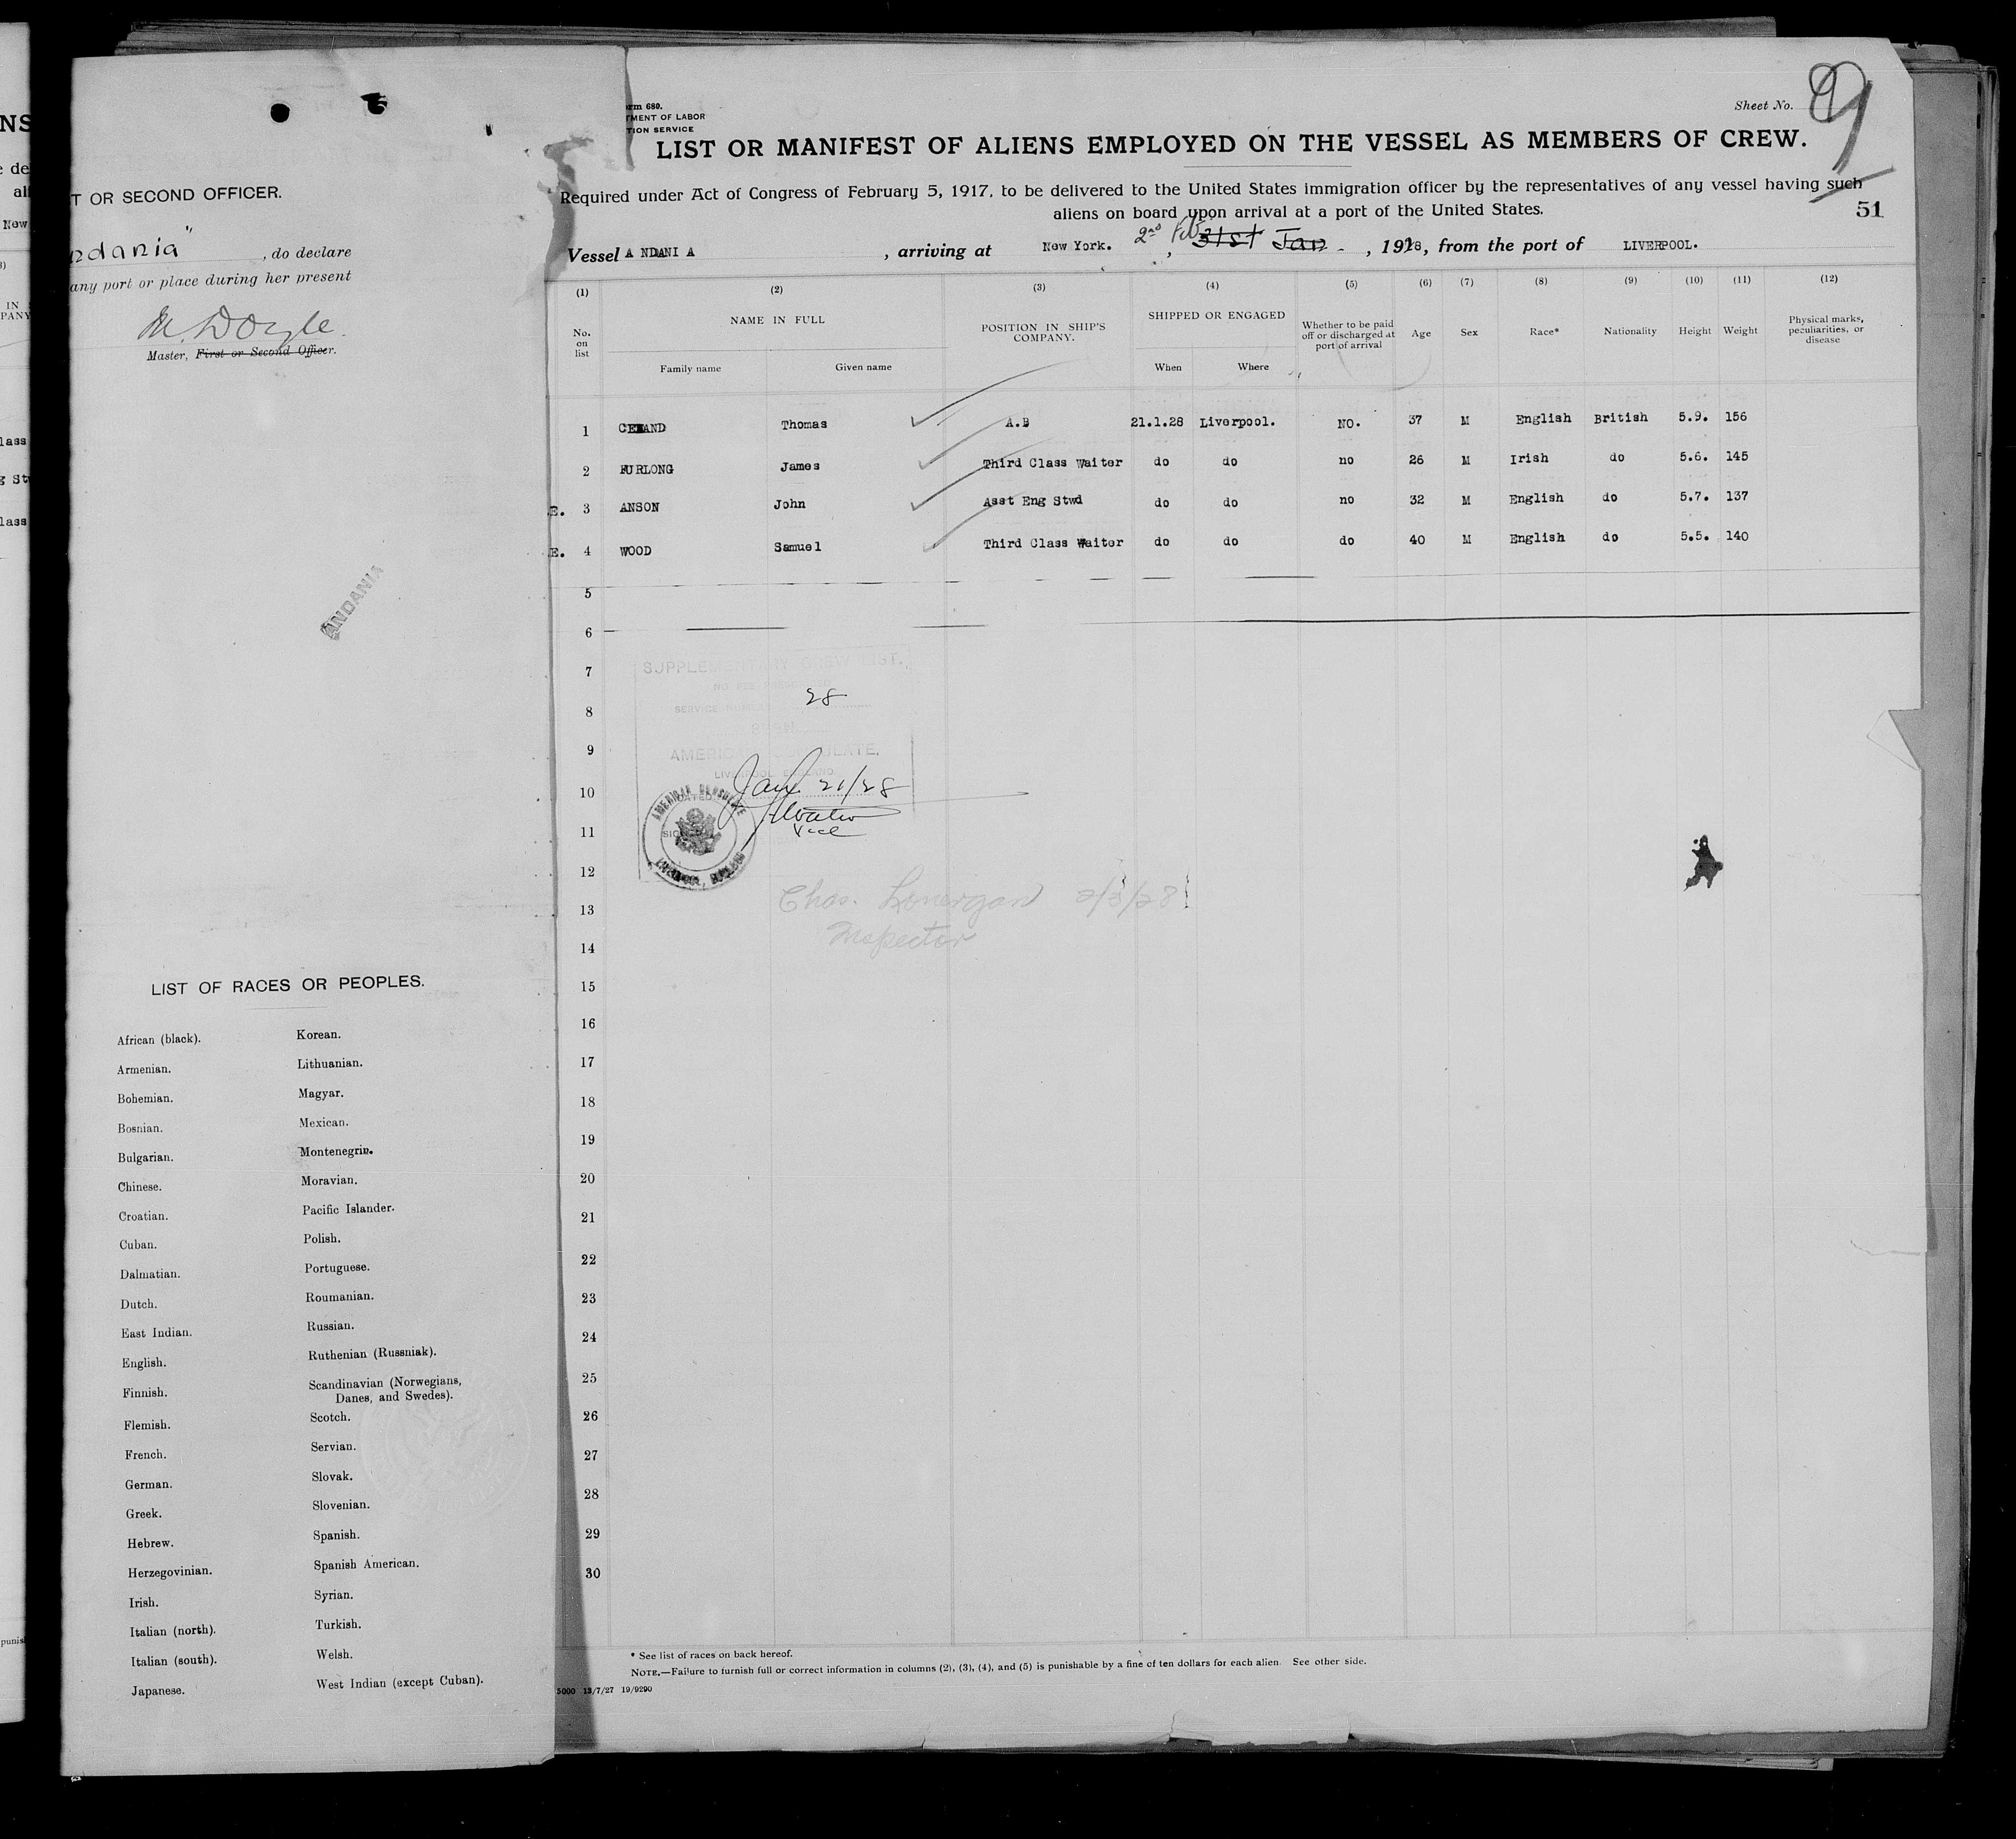 NS
e de
ali
New
3)
IN S
PANY
lass
g Stw
lass
punish
T OR SECOND OFFICER.
ndania"
, do declare
any port or place during her present
M. Doyle.
Master, First or Second Officer.
ANDANIA
LIST OF RACES OR PEOPLES.
African (black). Korean.
Armenian. Lithuanian.
Bohemian. Magyar.
Bosnian. Mexican.
Bulgarian. Montenegrin.
Chinese. Moravian.
Croatian. Pacific Islander.
Cuban. Polish.
Dalmatian. Portuguese.
Dutch. Roumanian.
East Indian. Russian.
English. Ruthenian (Russniak).
Finnish. Scandinavian (Norwegians,
Danes, and Swedes).
Flemish. Scotch.
French. Servian.
German. Slovak.
Greek. Slovenian.
Hebrew. Spanish.
Herzegovinian. Spanish American.
Irish. Syrian.
Italian (north). Turkish.
Italian (south). Welsh.
Japanese. West Indian (except Cuban).
rm 680.
TMENT OF LABOR
TION SERVICE
Sheet No. 9
LIST OR MANIFEST OF ALIENS EMPLOYED ON THE VESSEL AS MEMBERS OF CREW.
Required under Act of Congress of February 5, 1917, to be delivered to the United States immigration officer by the representatives of any vessel having such
aliens on board upon arrival at a port of the United States.
51
Vessel A NDANI A , arriving at New York. , 2nd Feb 31st Jan. , 1928, from the port of LIVERPOOL.
(1) (2) (3) (4) (5) (6) (7) (8) (9) (10) (11) (12)
No. on list NAME IN FULL POSITION IN SHIP'S COMPANY. SHIPPED OR ENGAGED Whether to be paid off or discharged at port of arrival Age Sex Race* Nationality Height Weight Physical marks, peculiarities, or disease
Family name Given name When Where
1 Thomas A.B 21.1.28 Liverpool. NO. 37 M English British 5.9. 156
2 FURLONG James Third Class Waiter do do no 26 M Irish do 5.6. 145
E. 3 ANSON John Asst Eng Stwd do do no 32 M English do 5.7. 137
E. 4 WOOD Samuel Third Class Waiter do do do 40 M English do 5.5. 140
5
6
7
SUPPLEMENTARY CREW LIST.
28
8
SERVICE NUMBER
9
AMERICAN CONSULATE.
LIVERPOOL, ENGLAND.
10
DATED Jany 21/28
AMERICAN CONSULATE
11
Vice
12
13
Chas. Lonergan 2/3/28
Inspector
14
15
16
17
18
19
20
21
22
23
24
25
26
27
28
29
30
* See list of races on back hereof.
NOTE.—Failure to furnish full or correct information in columns (2), (3), (4), and (5) is punishable by a fine of ten dollars for each alien. See other side.
5000 13/7/27 19/9290